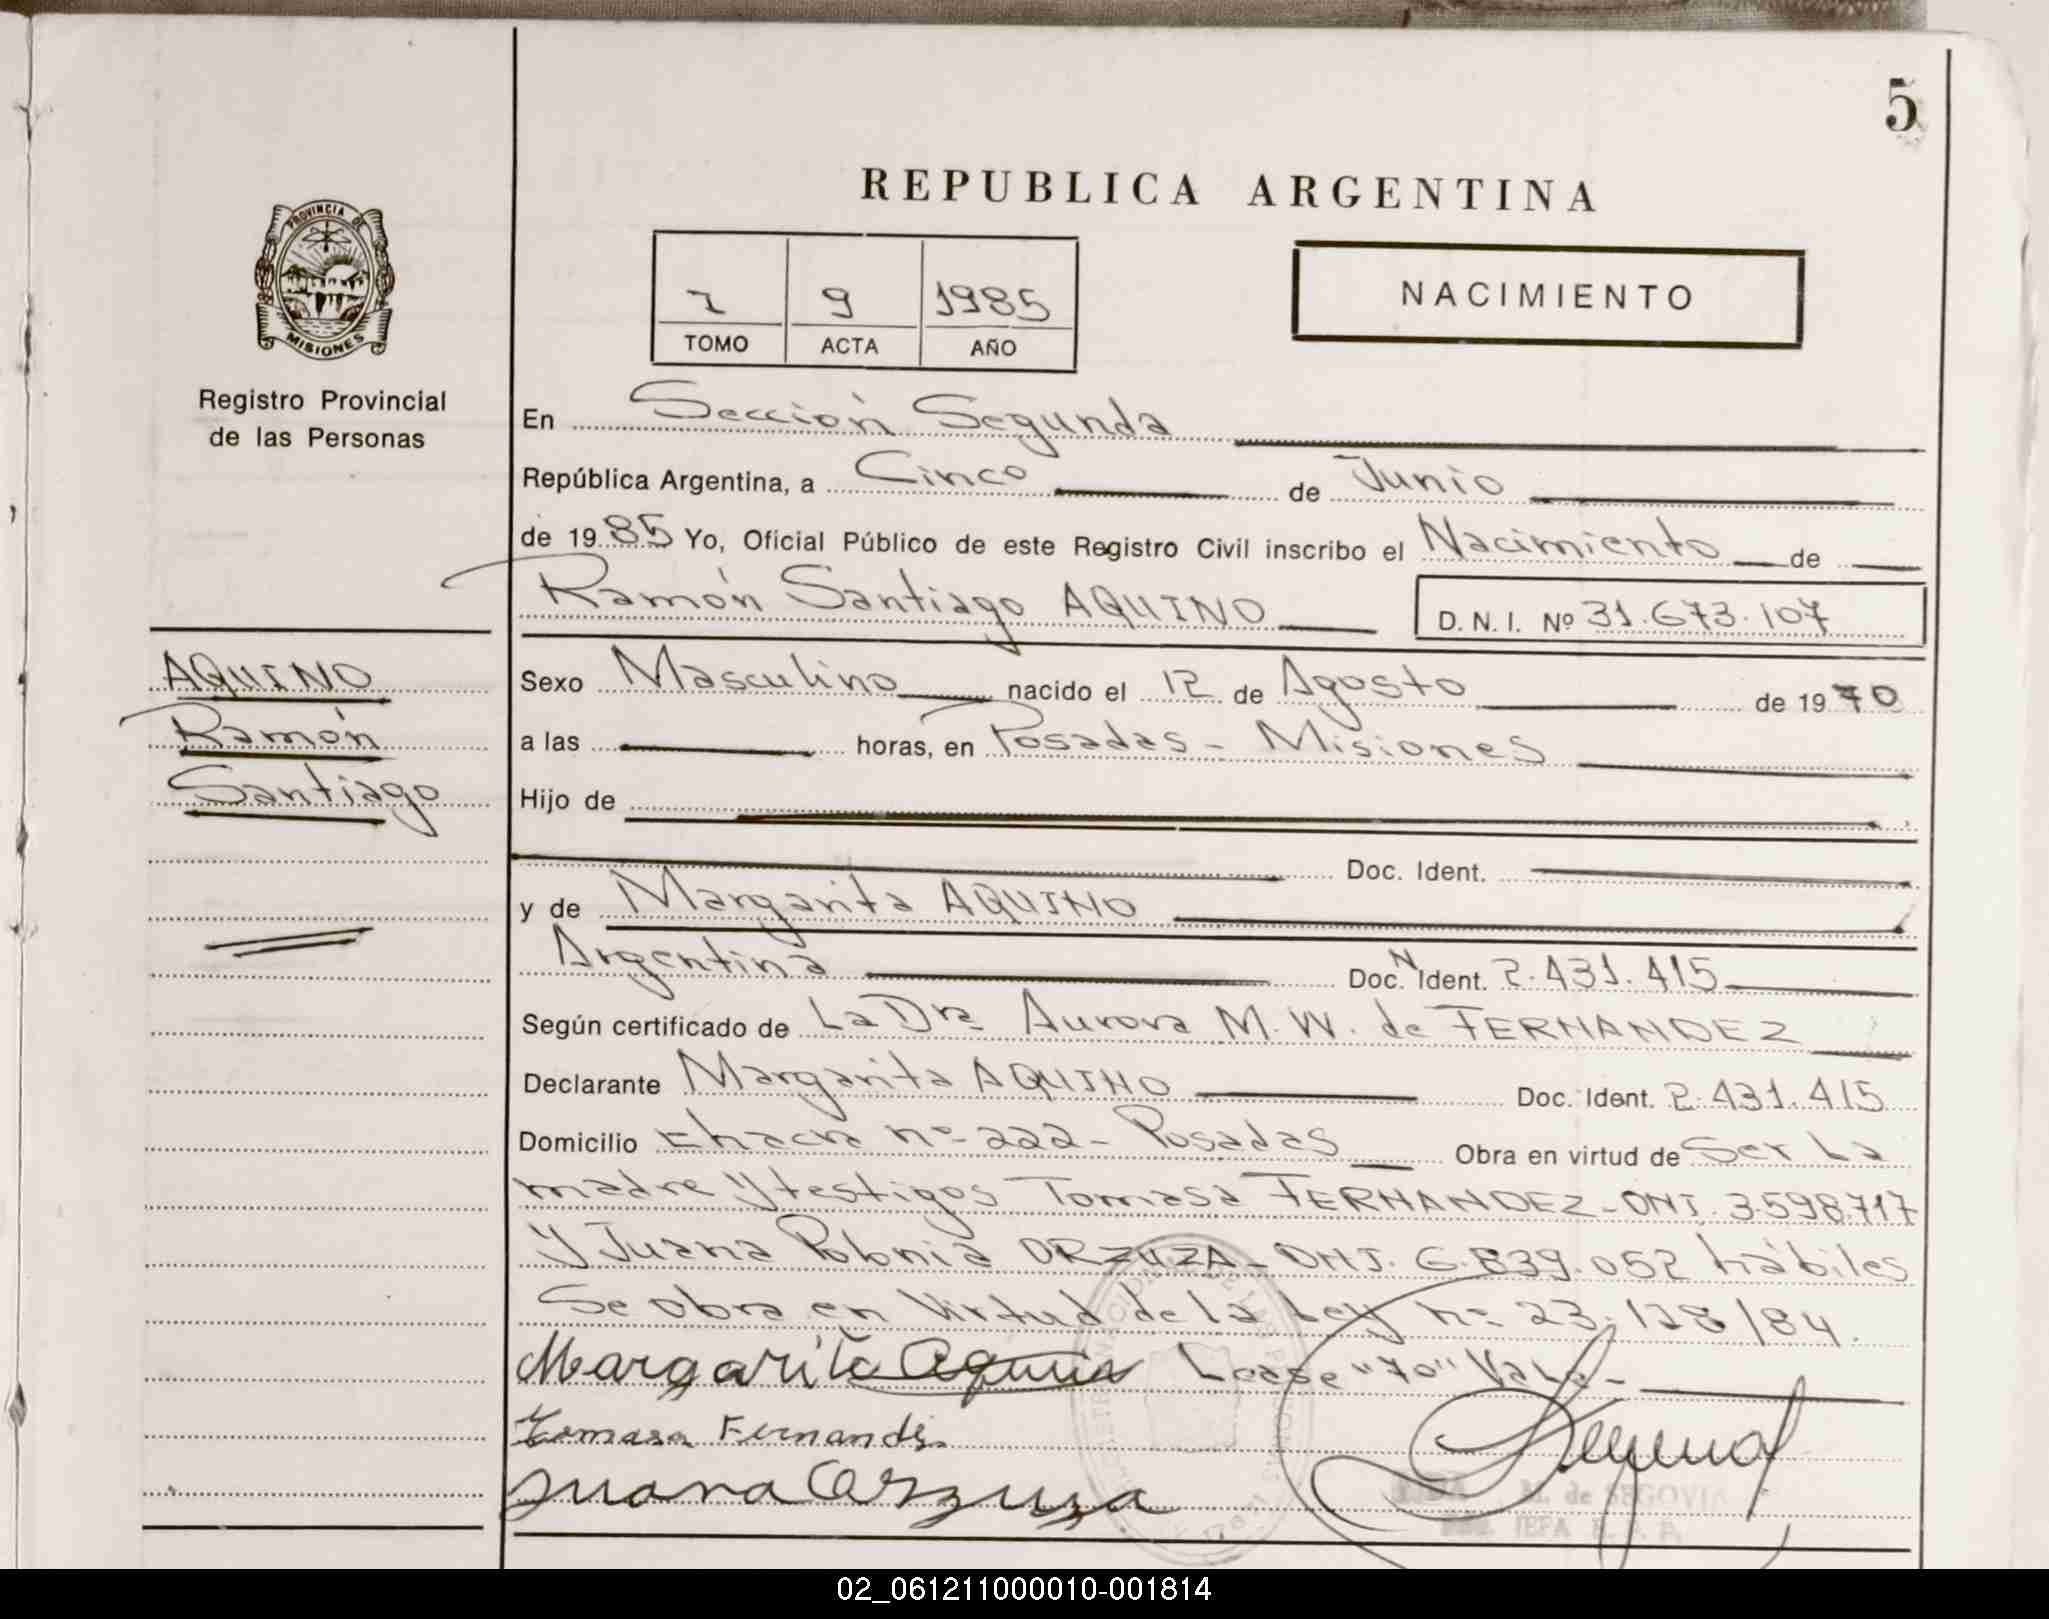 5
REPUBLICA ARGENTINA
PROVINCIA DE
MISIONES
Registro Provincial
de las Personas
I 9 1985
TOMO ACTA AÑO
NACIMIENTO
En Sección Segunda
República Argentina, a Cinco de Junio
de 1985 Yo, Oficial Público de este Registro Civil inscribo el Nacimiento de
Ramón Santiago AQUINO D. N. I. Nº 31.673.107
AQUINO
Ramón
Santiago
Sexo Masculino nacido el 12 de Agosto de 1970
a las horas, en Posadas - Misiones
Hijo de
Doc. Ident.
y de Margarita AQUINO
Argentina Doc. N Ident. 2.431.415
Según certificado de La Dra Aurora M. W. de FERNANDEZ
Declarante Margarita AQUINO Doc. Ident. 2.431.415
Domicilio Chacra nº 222 - Posadas Obra en virtud de Ser La
madre y testigos Tomasa FERNANDEZ - DNI. 3.598.717
y Juana Polonia ORZUZA - DNI. 6.839.052 hábiles
Se obra en Virtud de la Ley nº 23.128/84.
Margarita Aquino Lease "70" Vale -
Tomasa Fernandes
Juana Orzuza
M. de SEGOVIA
JEFA
02_061211000010-001814